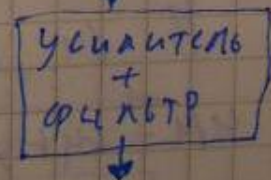 усилитель
+
фильтр